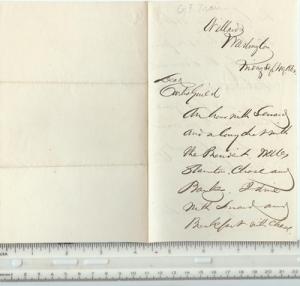 G F Train
Willards
Washington
Dear
Curtis Guild
An hour with Seward
and a long chat with
the President Welles
Stanton, Chase and
Banks. I dine
with Seward and
Breakfast with Chase.